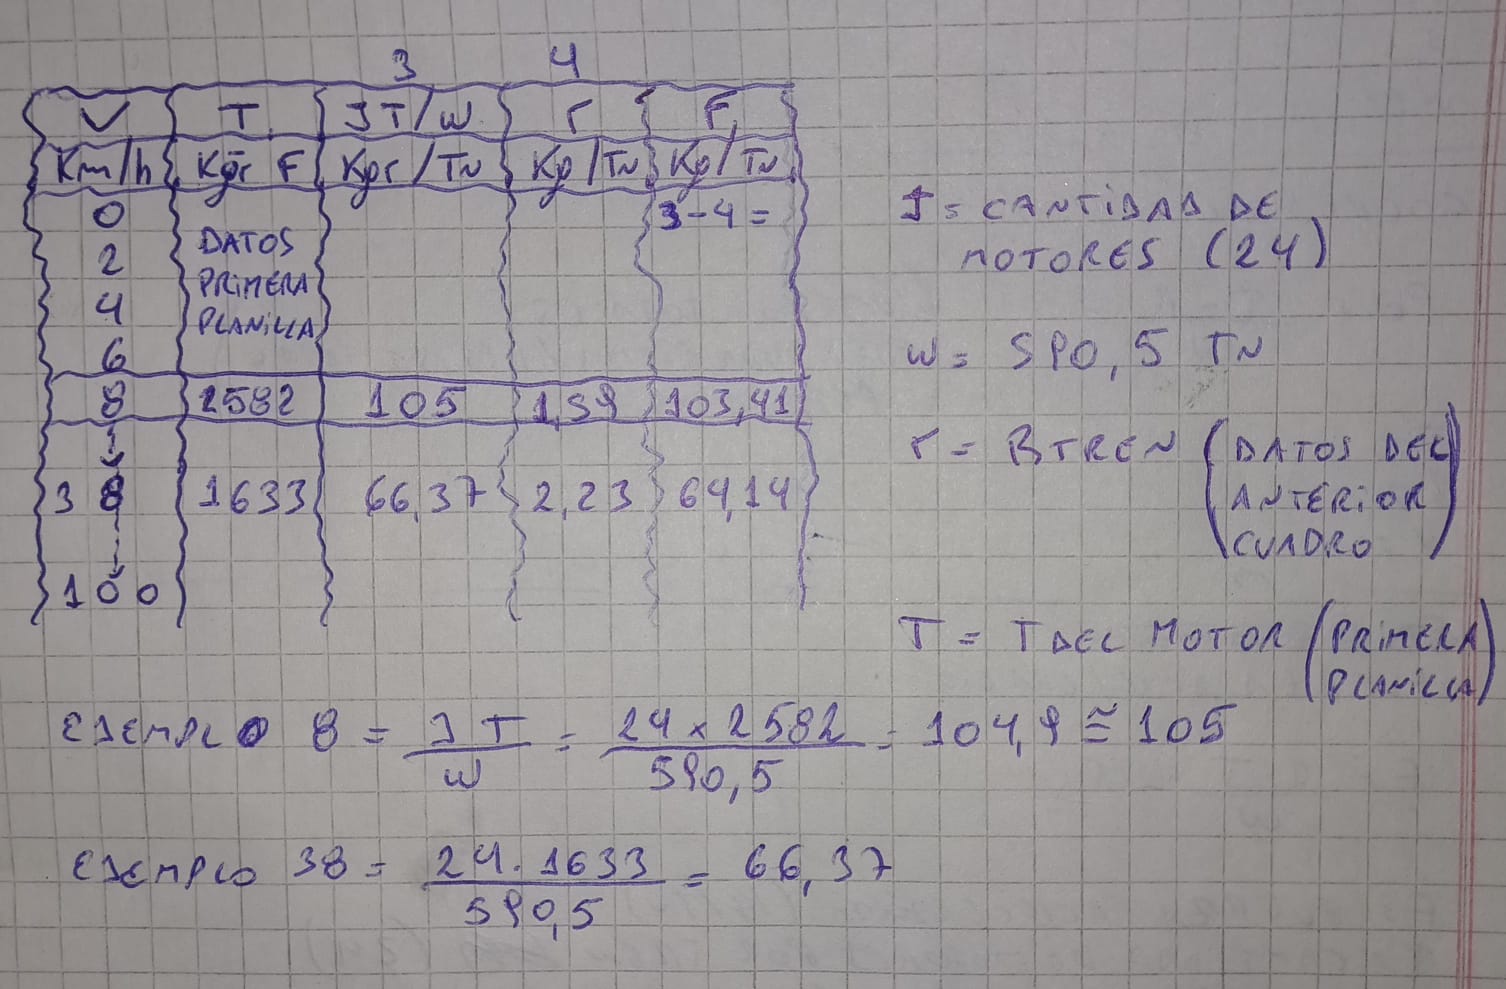 3 4
V T JT/W r F
Km/h Kgr F Kgr/TN Kg/TN Kg/TN
0 3-4=
2 DATOS
PRIMERA
4 PLANILLA
6
8 2582 105 1,59 103,41
38 1633 66,37 2,23 64,14
100
J = CANTIDAD DE
MOTORES (24)
W = 590,5 TN
r = RTREN (DATOS DEL
ANTERIOR
CUADRO)
T = T DEL MOTOR (PRIMERA
PLANILLA)
EJEMPLO 8 = JT/W = 24 x 2582/590,5 = 104,9 ≅ 105
EJEMPLO 38 = 24 . 1633/590,5 = 66,37